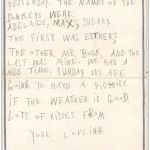 YESTERDAY. THE NAMES OF THE
DONKEYS WERE:
ADELAIDE, MAX, SHERRY
THE FIRST WAS ESTHERS
THE OTHER MR. BUNK, AND THE
LAST WAS MINE. WE HAD A
NICE TIME. SUNDAY WE ARE
GOING TO HAVE A PICNIC
IF THE WEATHER IS GOOD.
LOTS OF KISSES FROM
YOUR LOVEING